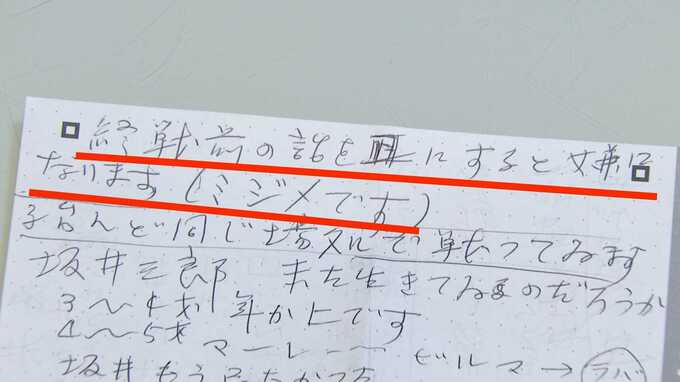 終戦前の話を耳にすると嫌に
なります(ミジメです)
殆んど同じ場処で戦ってゐます
坂井三郎 未だ生きてゐるのだろうか
3〜4才 年が上です
4〜5才 マーレー ビルマ→ラバ
坂井もう